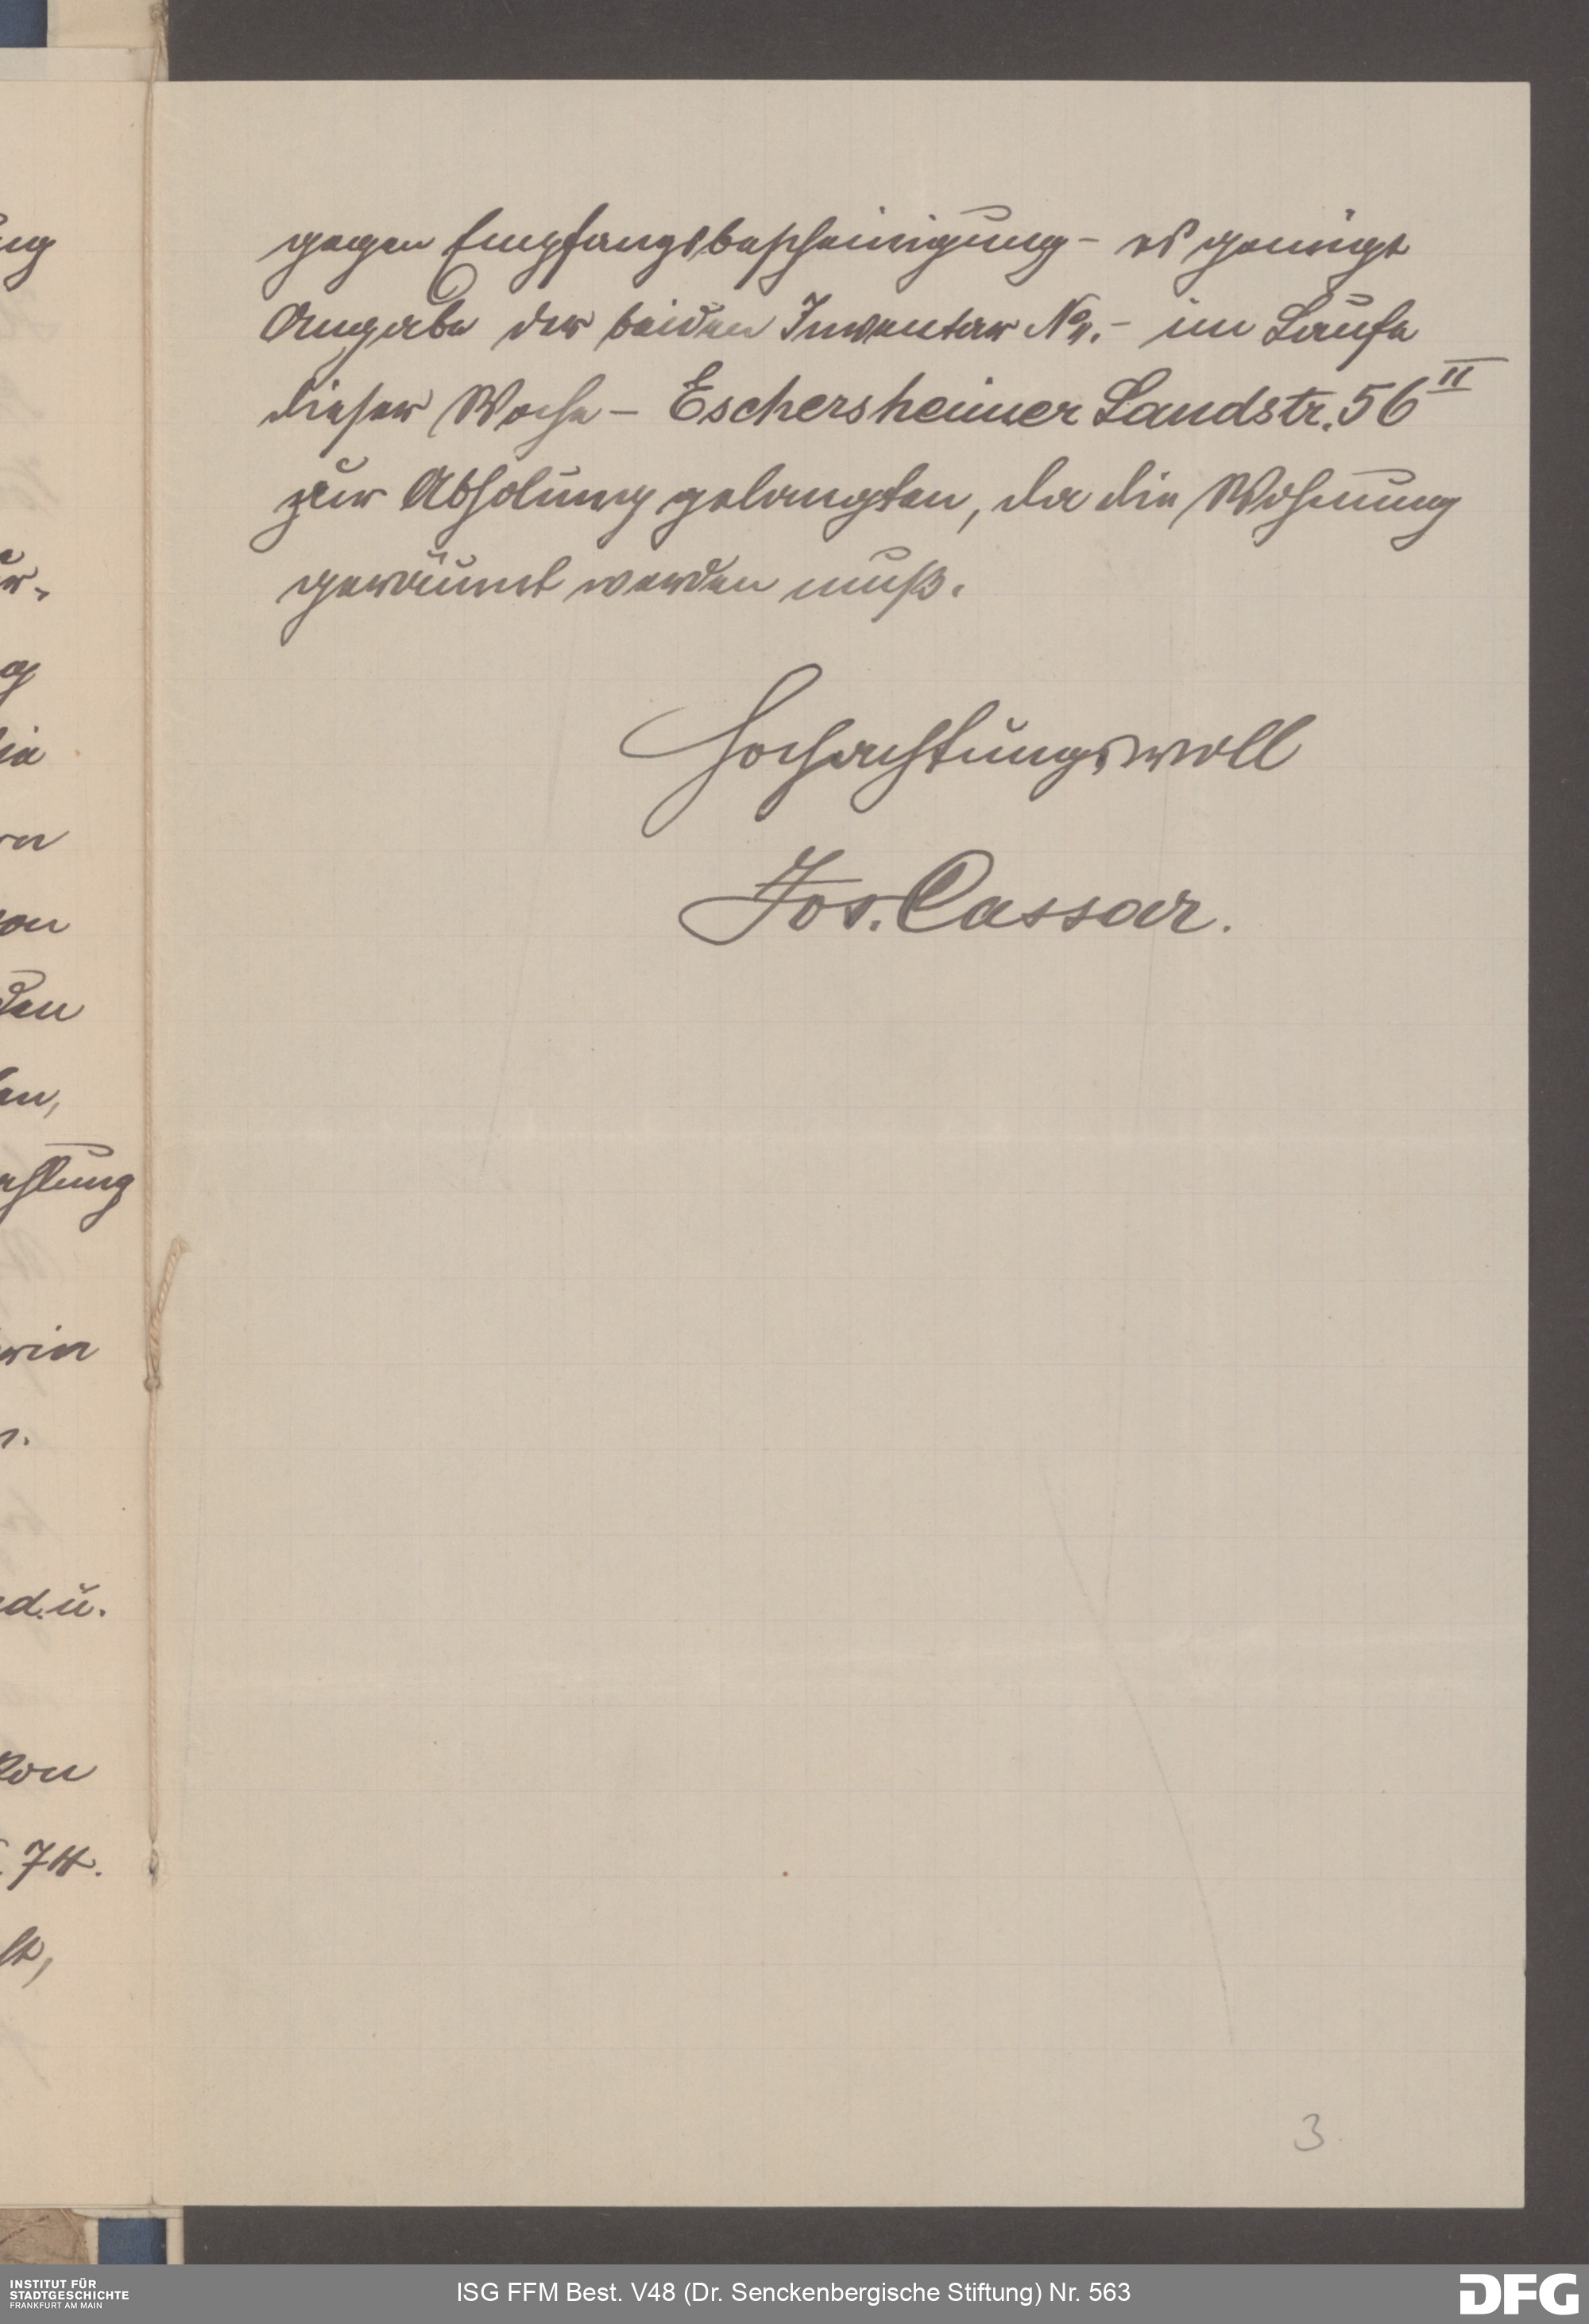 gegen Empfangsbescheinigung - es genügt
Angabe der beiden Inventar No. - im Laufe
dieser Woche - Eschersheimer Landstr. 56 II
zur Abholung gelangten, da die Wohnung
geräumt werden muß.
Hochachtungsvoll
Jos. Cassar.
ung
ur.
g
die
on
den
en,
ahlung
d. u.
von
74.
lt,
3
INSTITUT FÜR
STADTGESCHICHTE
FRANKFURT AM MAIN
ISG FFM Best. V48 (Dr. Senckenbergische Stiftung) Nr. 563
DFG